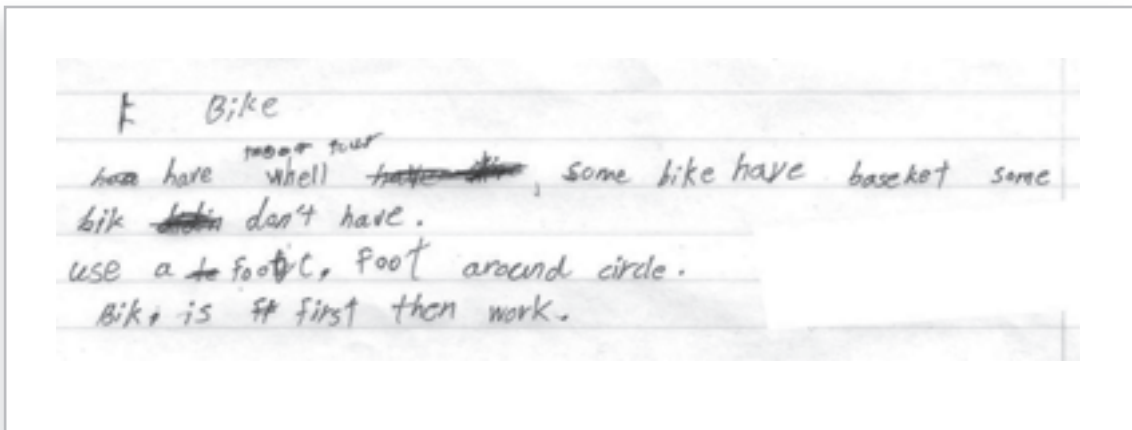 Bike
have whell, some bike have baseket some
bik don't have.
use a foot, Foot around circle.
Bik, is first then work.